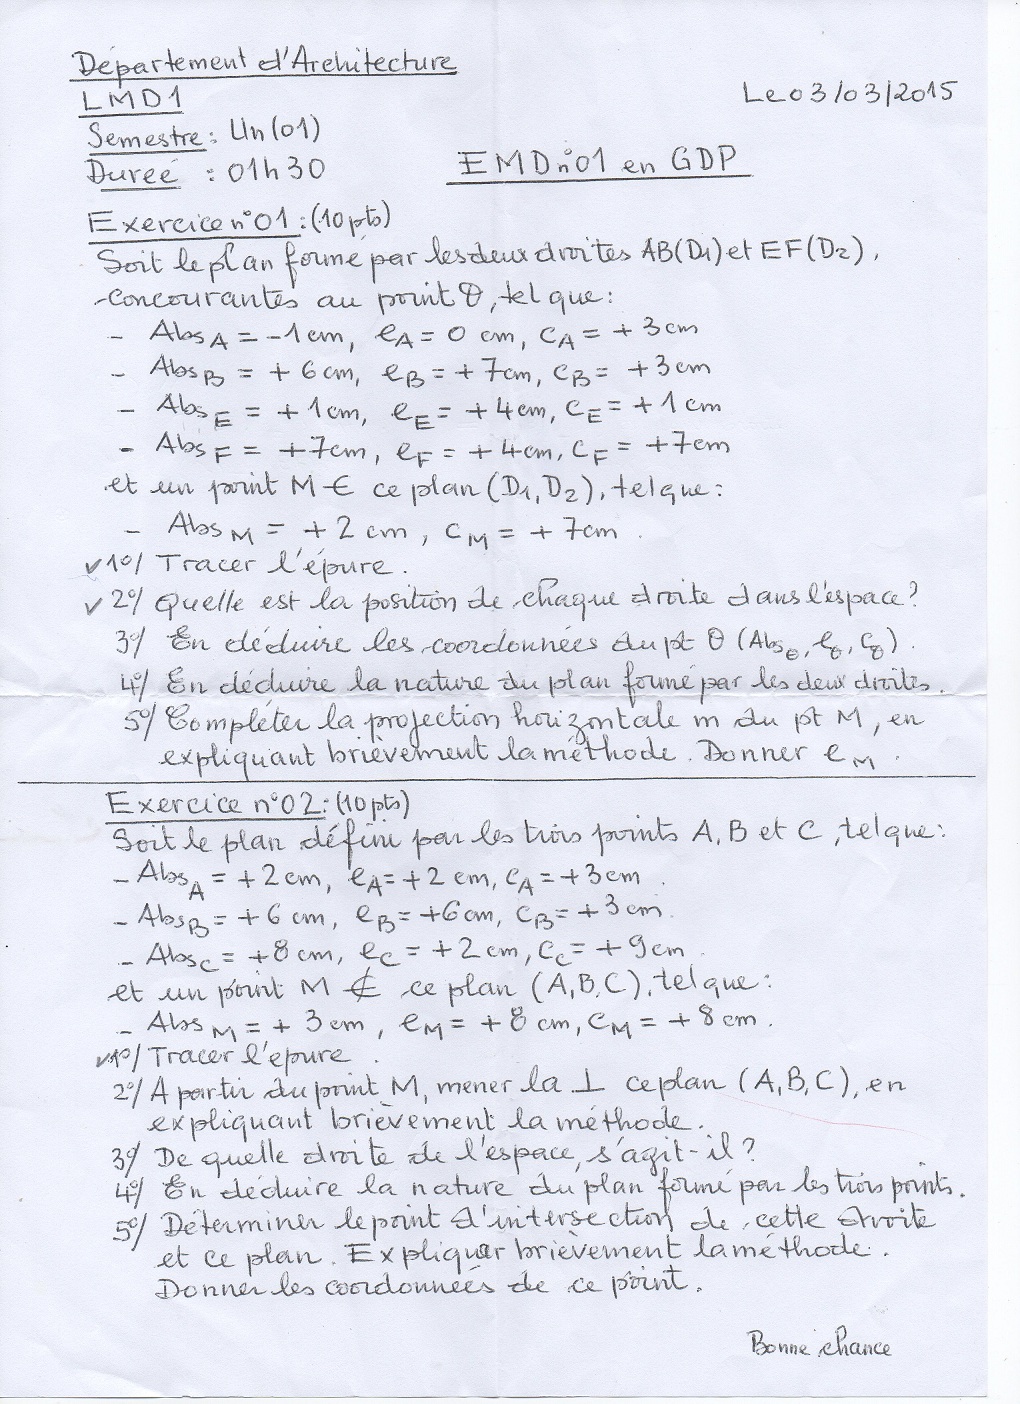 Département d'Architecture
LMD1
Le 03/03/2015
Semestre: Un (01)
Dureé : 01h30
EMD n°01 en GDP
Exercice n°01: (10pts)
Soit le plan formé par les deux droites AB(D1) et EF(D2),
concourantes au point θ, tel que:
- AbsA = -1cm, eA = 0 cm, cA = +3cm
- AbsB = +6cm, eB = +7cm, cB = +3cm
- AbsE = +1cm, eE = +4cm, cE = +1cm
- AbsF = +7cm, eF = +4cm, cF = +7cm
et un point M ∈ ce plan (D1, D2), tel que:
- AbsM = +2 cm, cM = +7cm.
✓ 1°/ Tracer l'épure.
✓ 2°/ Quelle est la position de chaque droite dans l'espace?
3°/ En déduire les coordonnées du pt θ (Absθ, eθ, cθ).
4°/ En déduire la nature du plan formé par les deux droites.
5°/ Compléter la projection horizontale m du pt M, en
expliquant brièvement la méthode. Donner eM.
Exercice n°02: (10pts)
Soit le plan défini par les trois points A, B et C, tel que:
- AbsA = +2cm, eA = +2 cm, cA = +3cm.
- AbsB = +6 cm, eB = +6cm, cB = +3cm.
- AbsC = +8 cm, eC = +2 cm, cC = +9cm.
et un point M ∉ ce plan (A, B, C), tel que:
- AbsM = + 3cm, eM = +8 cm, cM = +8 cm.
✓1°/ Tracer l'épure.
2°/ A partir du point M, mener la ⊥ ce plan (A, B, C), en
expliquant brièvement la méthode.
3°/ De quelle droite de l'espace, s'agit-il?
4°/ En déduire la nature du plan formé par les trois points.
5°/ Déterminer le point d'intersection de cette droite
et ce plan. Expliquer brièvement la méthode.
Donner les coordonnées de ce point.
Bonne chance